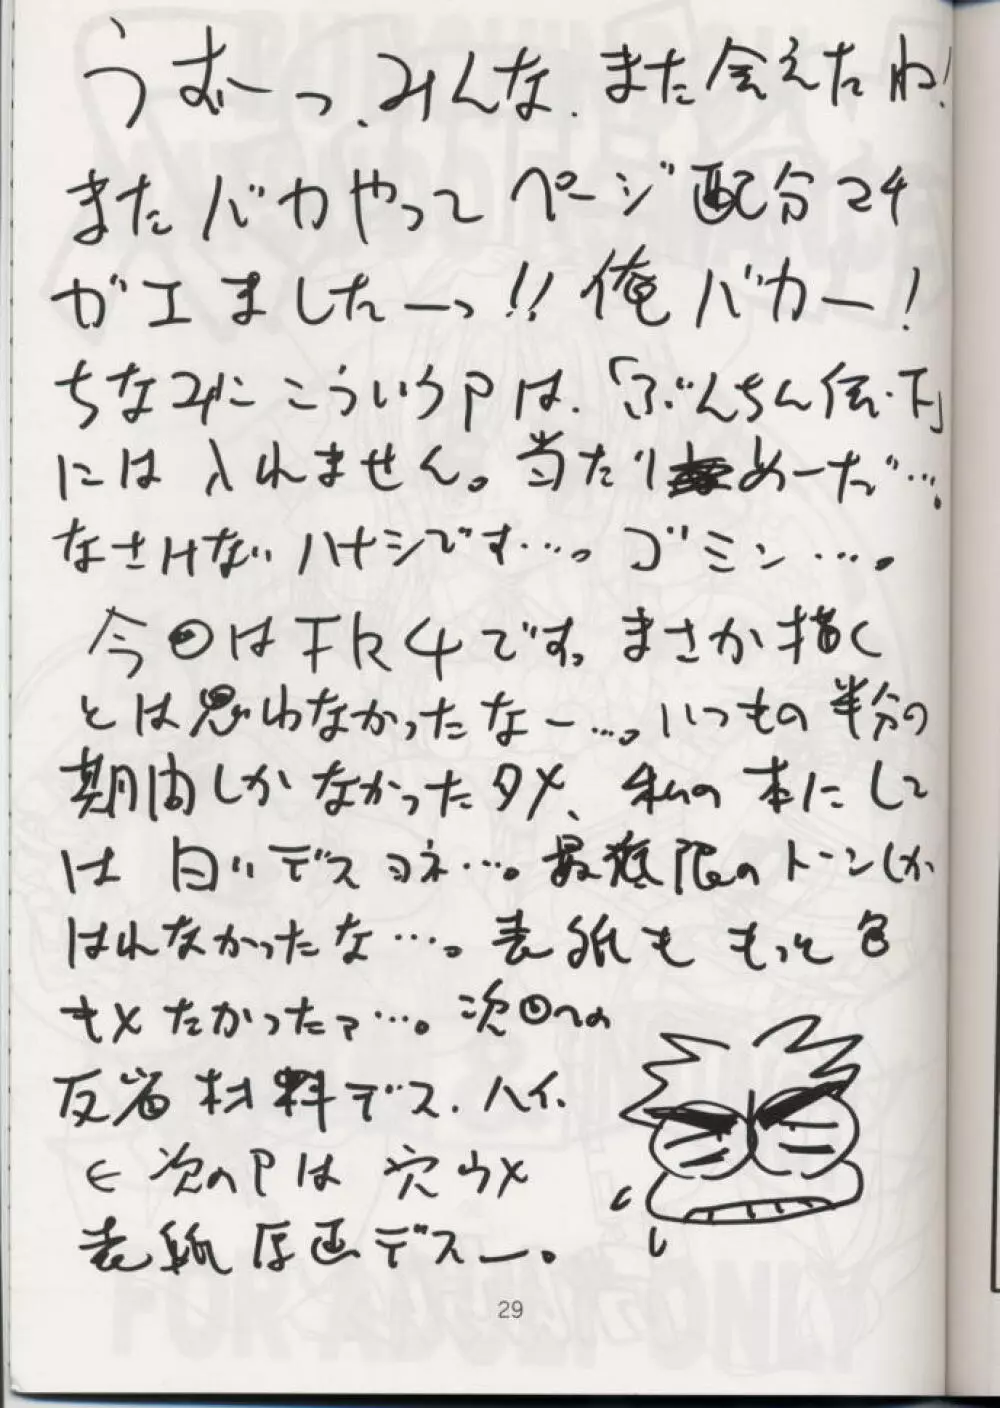 うむーっ、みんな、また会えたね!
またバカやってページ配分マチ
ガエましたーっ!!俺バカー!
ちなみにこういうPは、「ぶんちん伝・下」
には入れません。当たりめーだ…。
なさけないハナシです…。ゴミン…。
今回は下級4です。まさか描く
とは思わなかったなー…。いつもの半分の
期間しかなかったタメ、私の本にして
は白いデスヨネ…。最低限のトーンしか
はれなかったな…。表紙ももっと色
キメたかったァ…。次回への
反省材料デス、ハイ、
← 次のPは穴ウメ
表紙原画デスー。
29